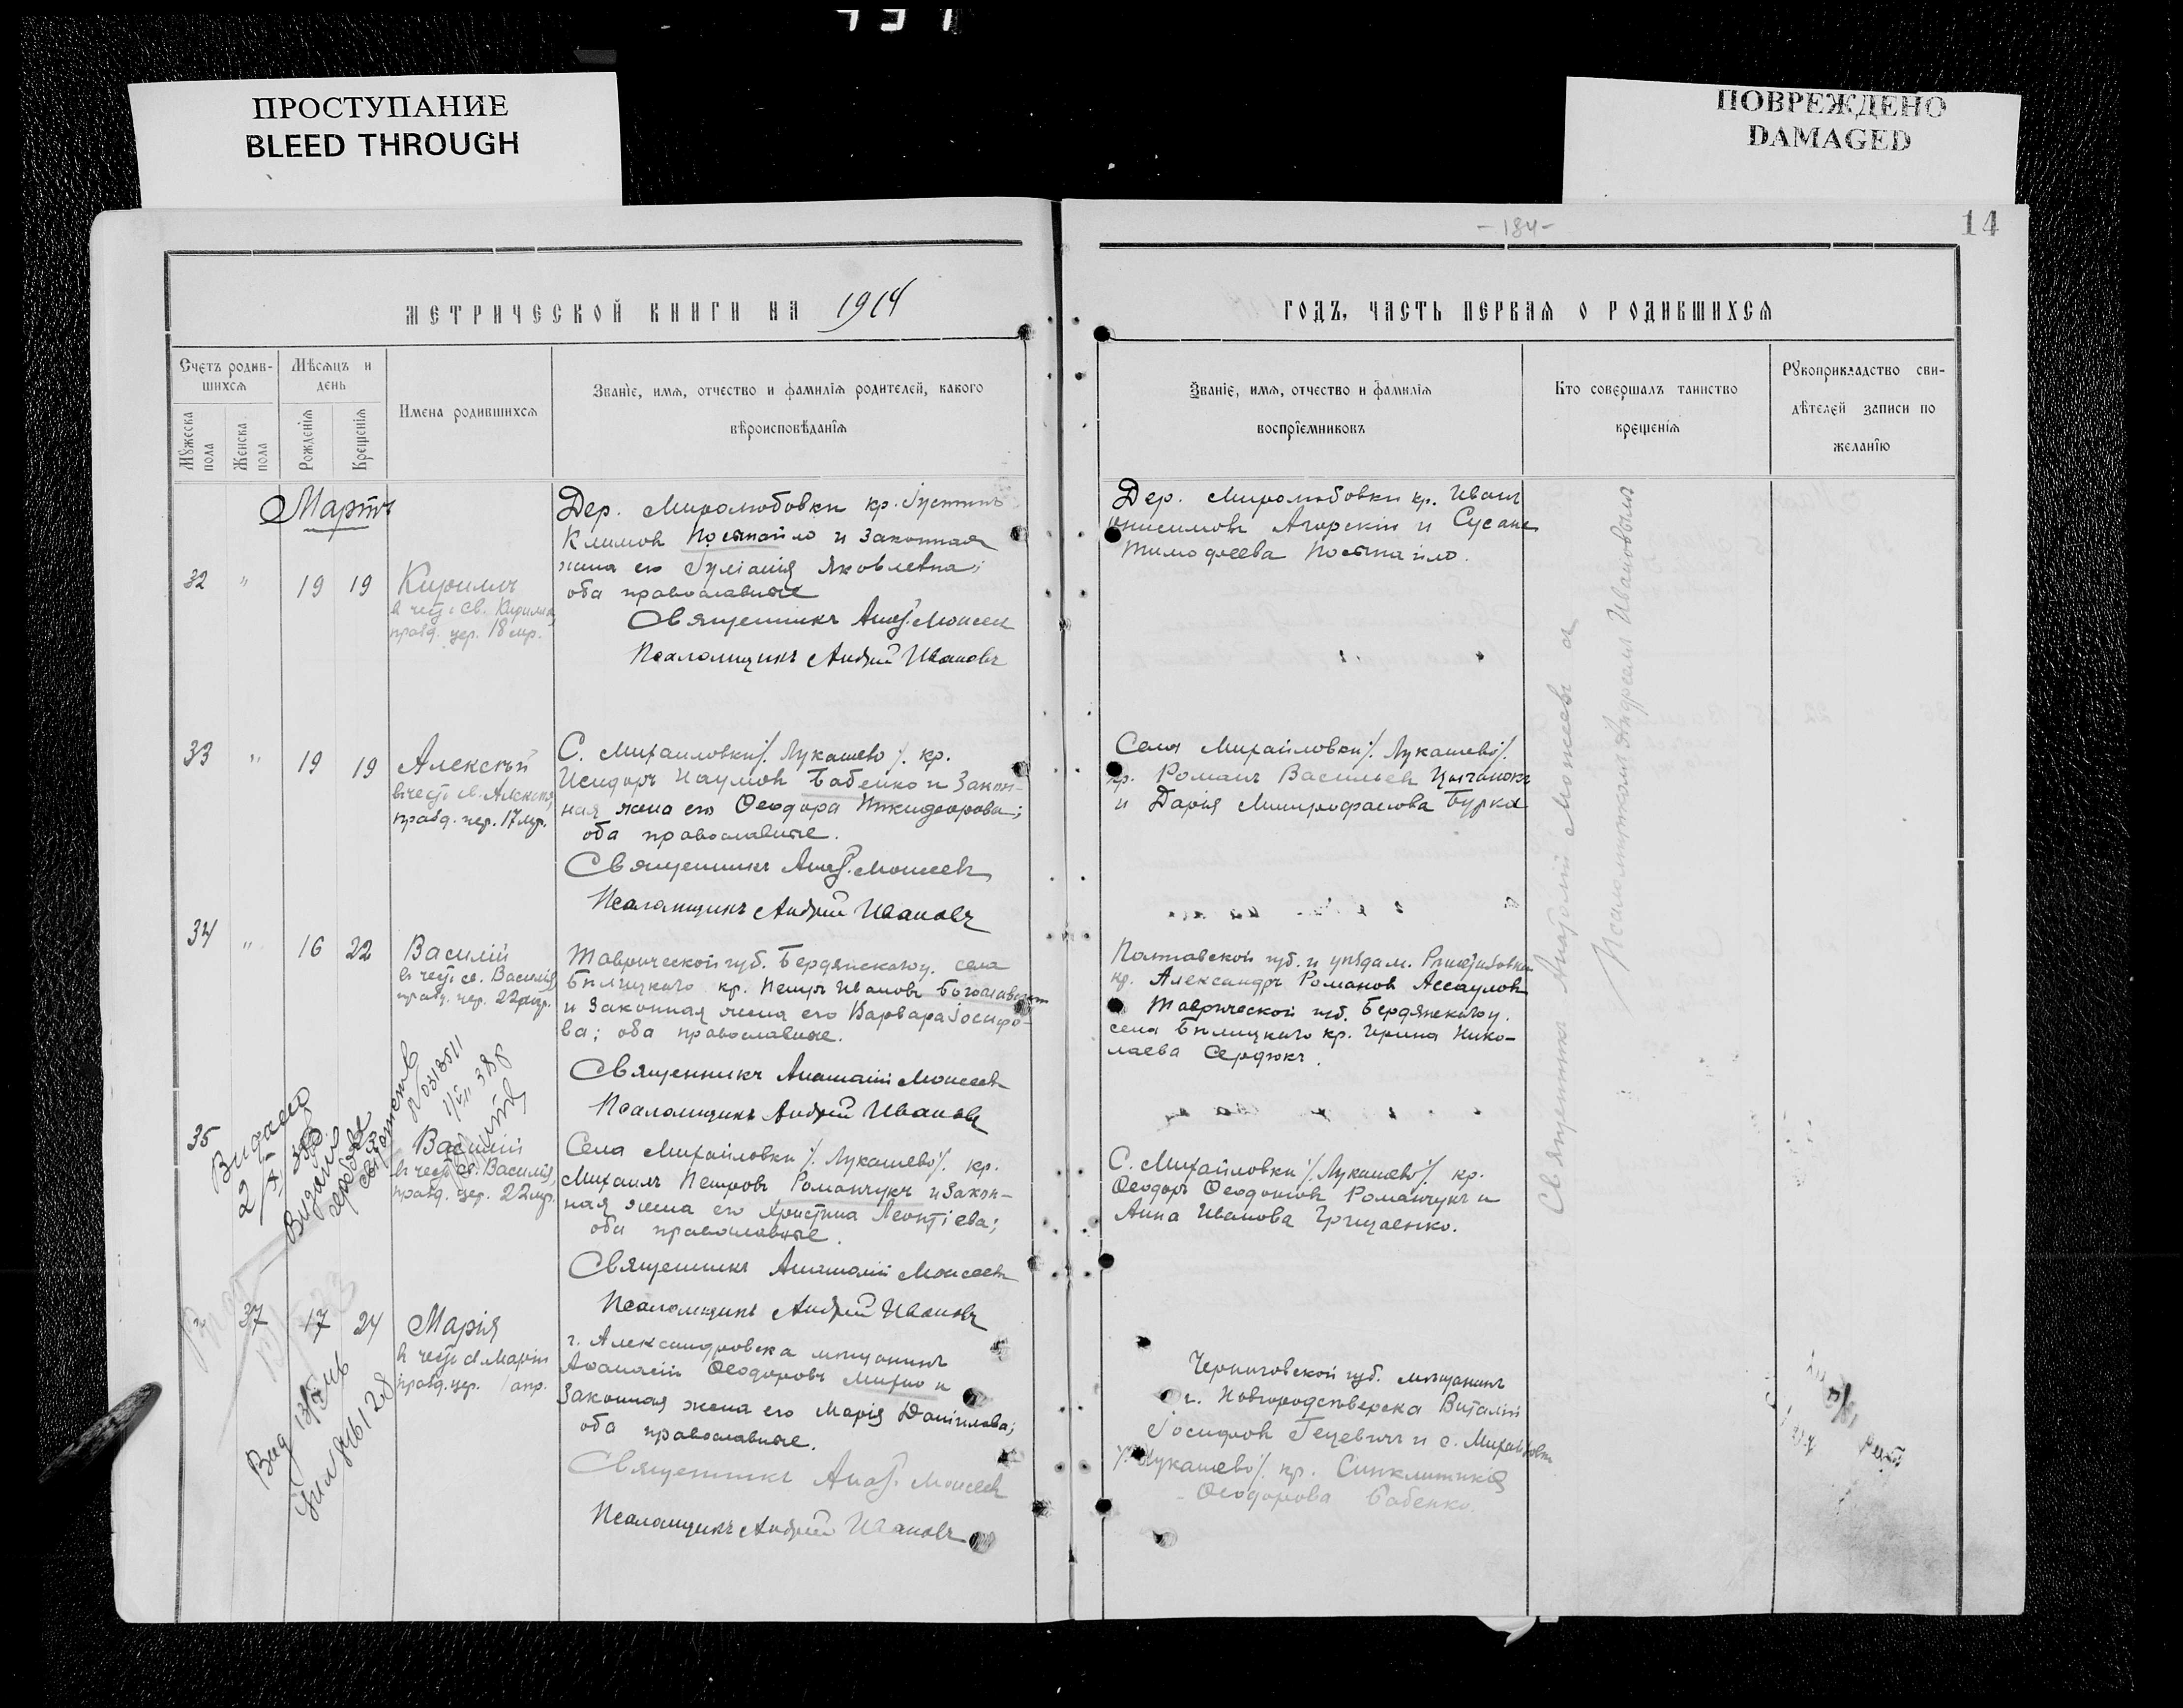 ПРОСТУПАНИЕ
BLEED THROUGH
ПОВРЕЖДЕНО
DAMAGED
-184-
14
МЕТРИЧЕСКОЙ КНИГИ НА 1914
ГОДЪ, ЧАСТЬ ПЕРВАЯ О РОДИВШИХСЯ
Счетъ родив-
шихся
Мѣсяцъ и
день
Мужеска
пола
Женска
пола
Рожденія
Крещенія
Имена родившихся
Званіе, имя, отчество и фамилія родителей, какого
вѣроисповѣданія
Званіе, имя, отчество и фамилія
воспріемниковъ
Кто совершалъ таинство
крещенія
Рукоприкладство сви-
дѣтелей записи по
желанію
Мартъ
32 " 19 19
Кириллъ
въ честь св. Кирилла,
празд. цер. 18 мр.
Дер. Миролюбовки кр. Іустинъ
Климовъ Посынайло и законная
жена его Іуліанія Яковлевна;
оба православные
Священникъ Анат. Моисеев
Псаломщикъ Андрей Ивановъ
Дер. Миролюбовки кр. Иванъ
Онисимовъ Агорскій и
Тимофеева Посынайло.
33 " 19 19
Алексѣй
въ честь св. Алексѣя,
празд. цер. 17 мр.
С. Михайловки /. Лукашево /. кр.
Исидоръ Наумовъ Бабенко и закон-
ная жена его Ѳеодора
оба православные.
Священникъ Анат. Моисеевъ
Псаломщикъ Андрей Ивановъ
Села Михайловки /. Лукашево /.
кр. Романъ Васильевъ Цыганокъ
и Дарія Митрофанова Бурка
34 " 16 22
Василій
въ честь св. Василія,
празд. цер. 22 мр.
Таврической губ. Бердянскаго у. села
Бѣлицкаго кр. Петръ Ивановъ
и законная жена его Варвара Іосифо-
ва; оба православные.
Священникъ Анатолій Моисеевъ
Псаломщикъ Андрей Ивановъ
Полтавской губ. и уѣзда м.
кр. Александръ Романовъ Ассауловъ
и Таврической губ. Бердянскаго у.
села Бѣлицкаго кр. Ирина Нико-
лаева Сердюкъ.
35
Василій
въ честь св. Василія,
празд. цер. 22 мр.
Села Михайловки /. Лукашево /. кр.
Михаилъ Петровъ Романчукъ и закон-
ная жена его Христина Леонтіева;
оба православные.
Священникъ Анатолій Моисеевъ
Псаломщикъ Андрей Ивановъ
С. Михайловки /. Лукашево /. кр.
Ѳеодоръ Романчукъ и
Анна Иванова Грищаенко.
" 37 17 24
Марія
въ честь св. Маріи
празд. цер. 1 апр.
г. Александровска мѣщанинъ
Аѳанасій Ѳеодоровъ Михно и
законная жена его Марія Даніилова;
оба православные.
Священникъ Анат. Моисеевъ
Псаломщикъ Андрей Ивановъ
Черниговской губ. мѣщанинъ
г. Новгородсѣверска Виталій
Іосифовъ Гецевичъ и с. Михайловки
/. Лукашево /. кр. Синклитикія
Ѳеодорова Бабенко.
Священникъ Анатолій Моисеевъ съ
Псаломщикомъ Андреемъ Ивановымъ